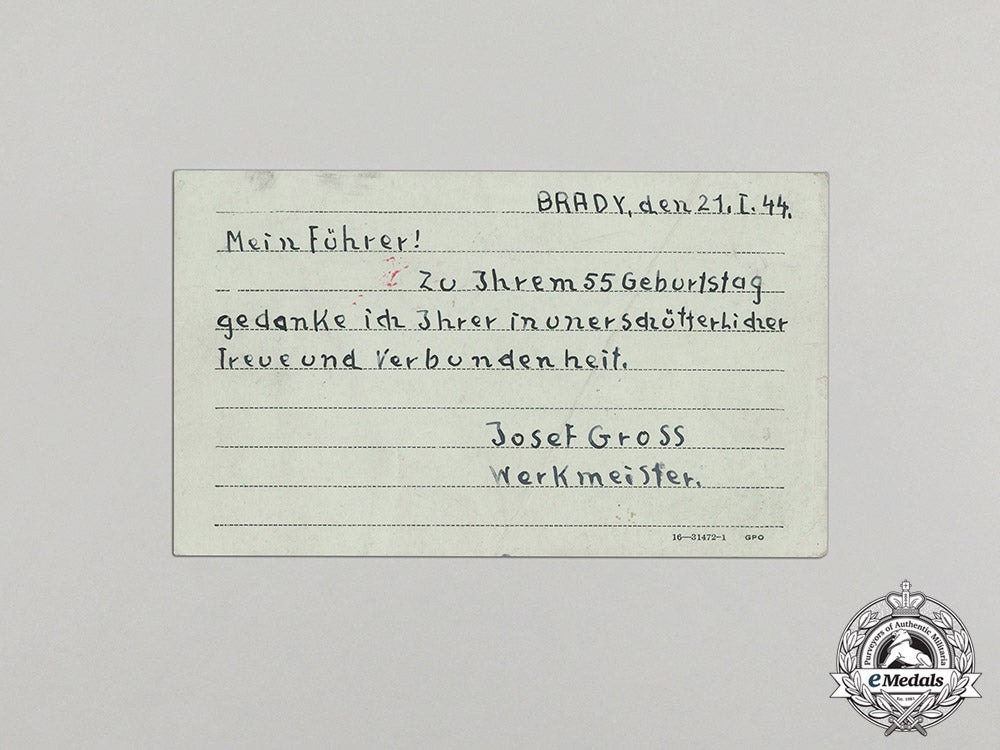 BRADY, den 21. I. 44.
Mein Führer!
Zu Ihrem 55 Geburtstag
gedanke ich Ihrer in unerschütterlicher
Treue und Verbundenheit.
Josef Gross
Werkmeister.
16—31472-1 GPO
Purveyors of Authentic Militaria
eMedals
Est. 1985